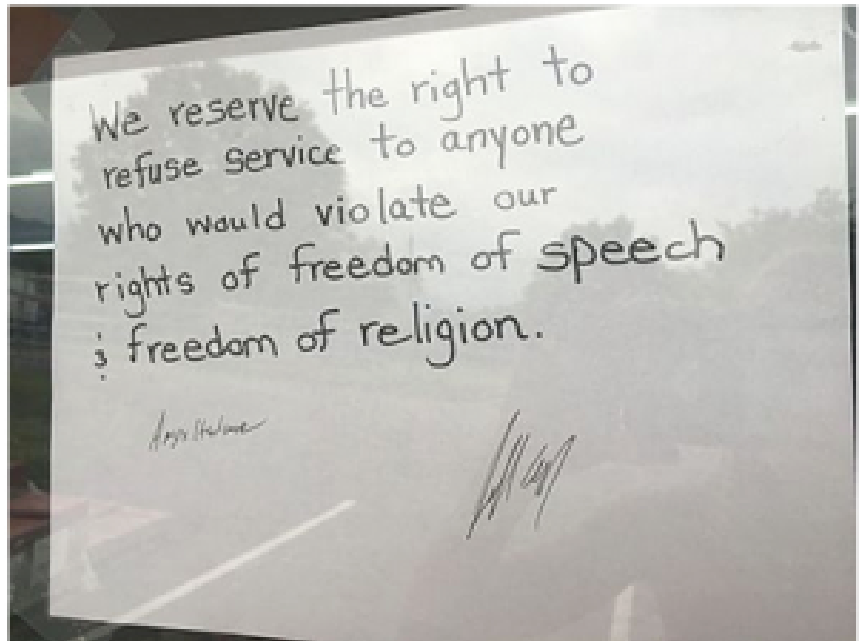 We reserve the right to
refuse service to anyone
who would violate our
rights of freedom of speech
& freedom of religion.